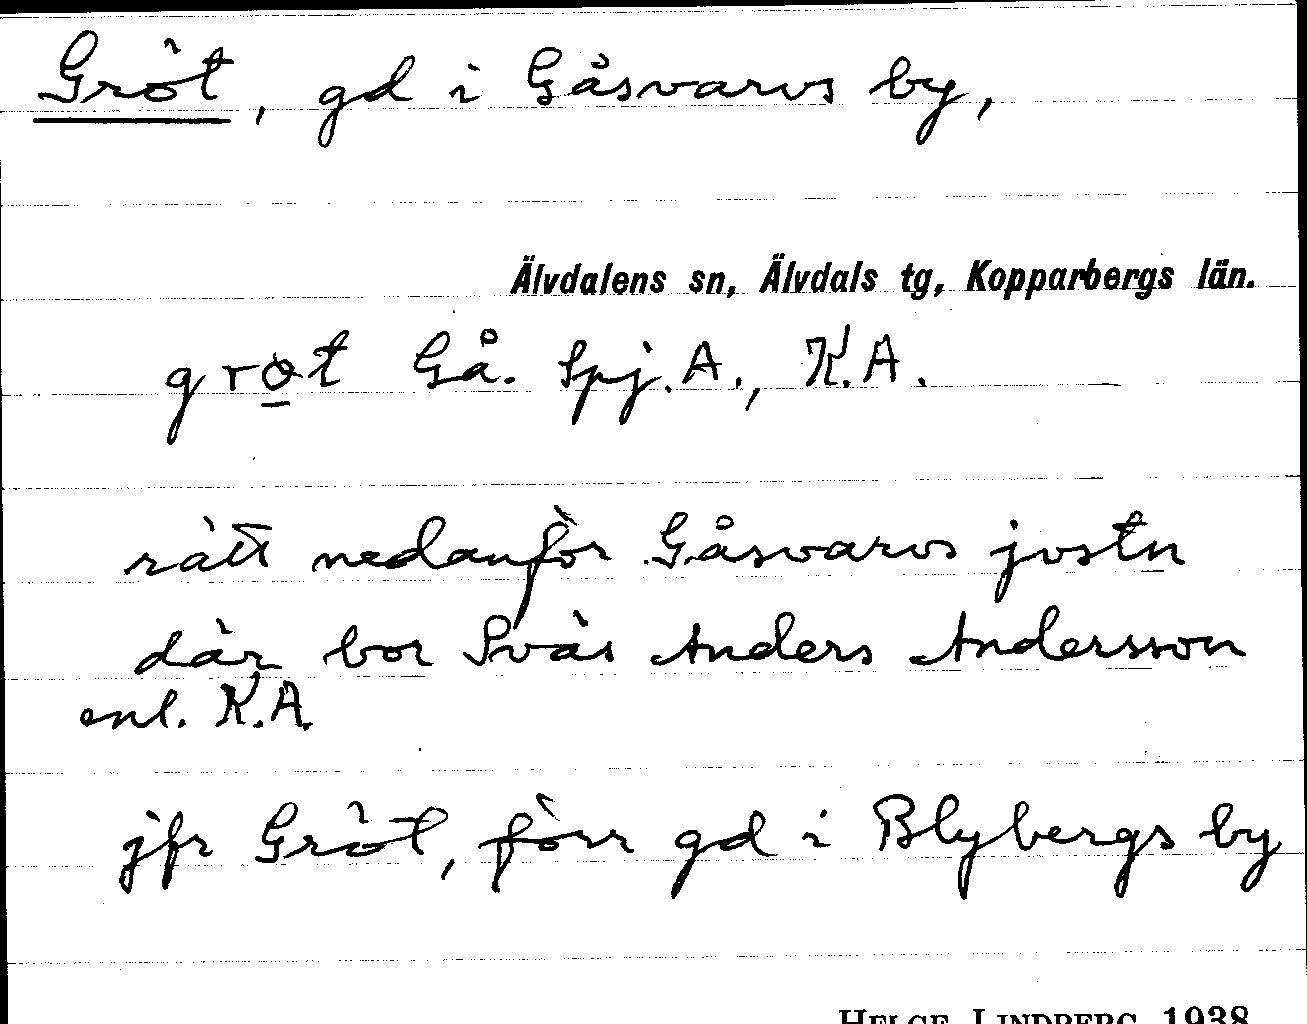 Gröt, gd i Gåsvarvs by,
Älvdalens sn, Älvdals tg, Kopparbergs län.
grøt Gå. Spj. A., K.A.
rätt nedanför Gåsvarvs jvstn
där bor Sväs Anders Andersson
enl. K.A.
jfr Gröt, förr gd i Blybergs by
HELGE LINDBERG 1938